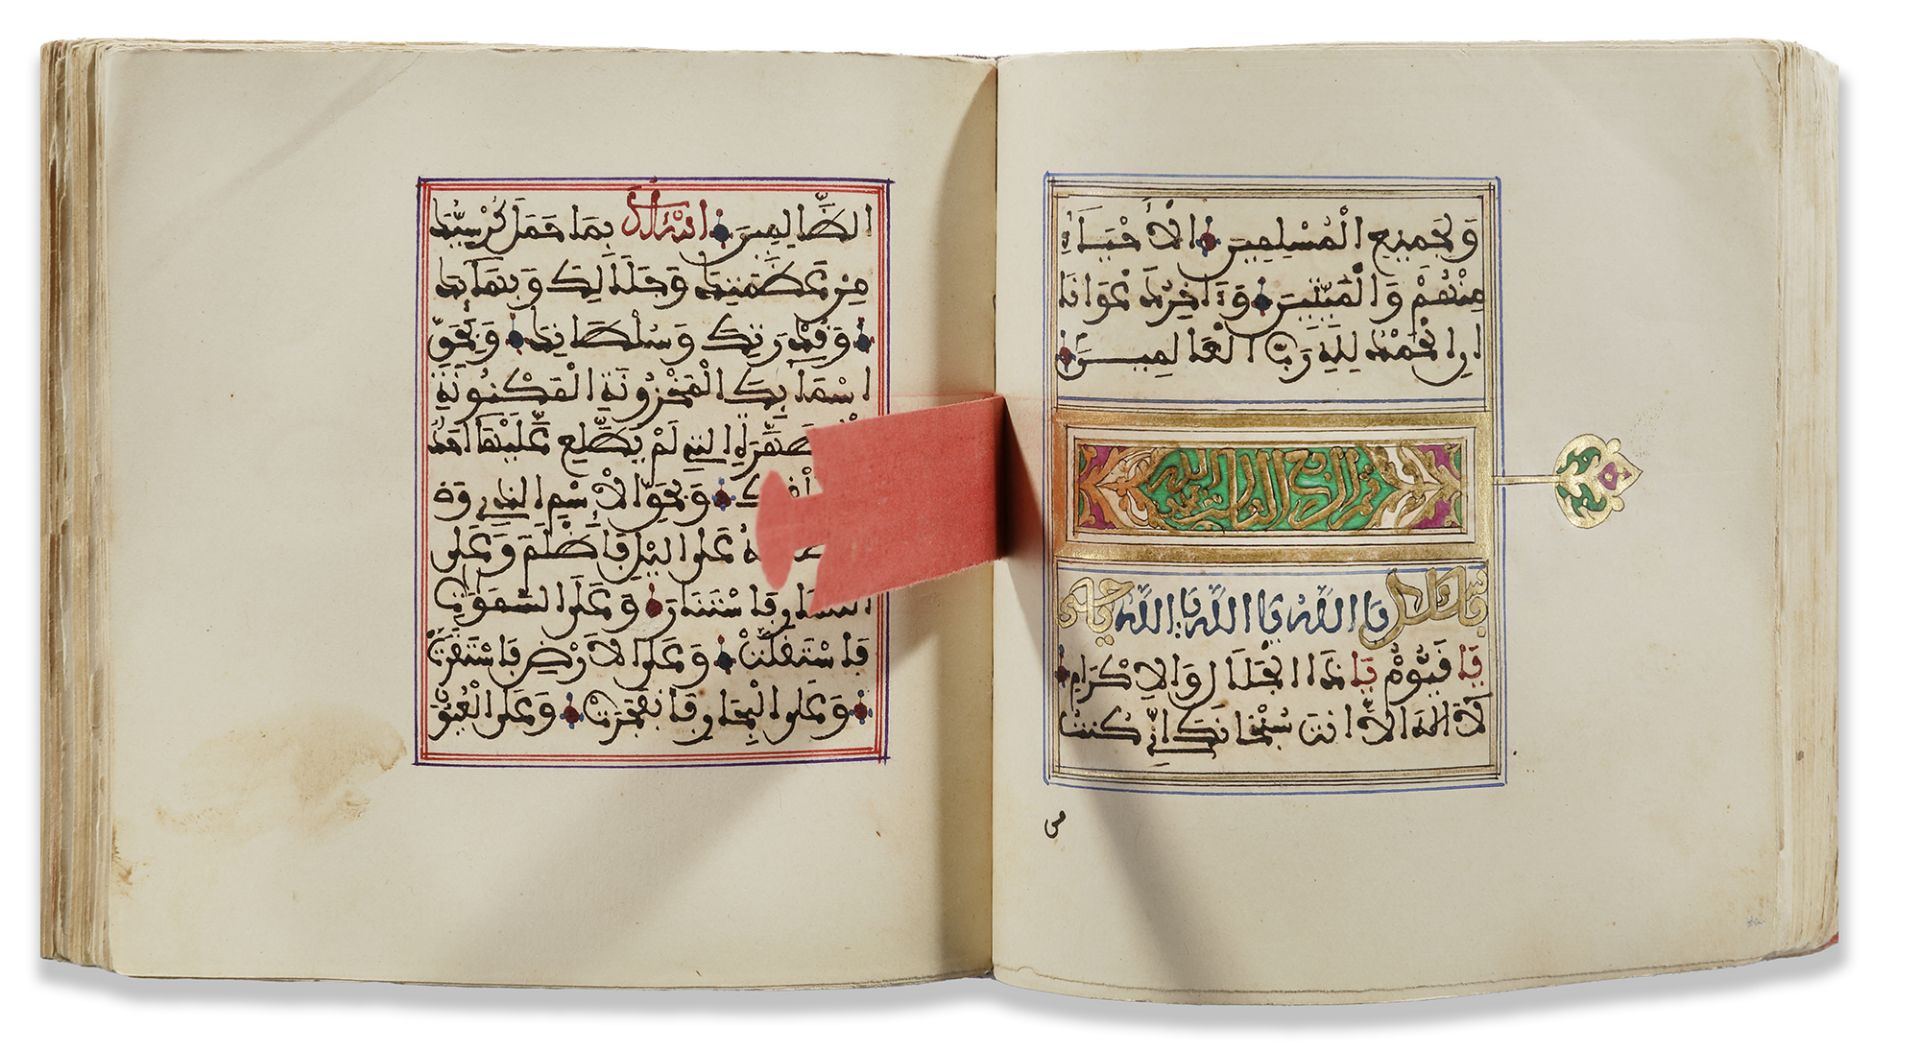 ولجميع المسلمين الاحياء
منهم والميتين وءاخر دعوانا
ان الحمد لله رب العالمين
تم الربع
فاسئلك يا الله يا الله يا الله يا حي
يا قيوم يا ذا الجلال والاكرام
لا اله الا انت سبحانك اني كنت
من
الظالمين اسئلك بما حمل كرسيك
من عظمتك وجلالك وبهايك
وقدرتك وسلطانك وبحق
اسمايك المخزونة المكنونة
المطهرة التي لم يطلع عليها احد
وبحق الاسم الذي وض
عته على اليل فاظلم وعلى
النهار فاستنار وعلى السموات
فاستقلت وعلى الارض فاستقرت
وعلى البحار فانفجرت وعلى العيون